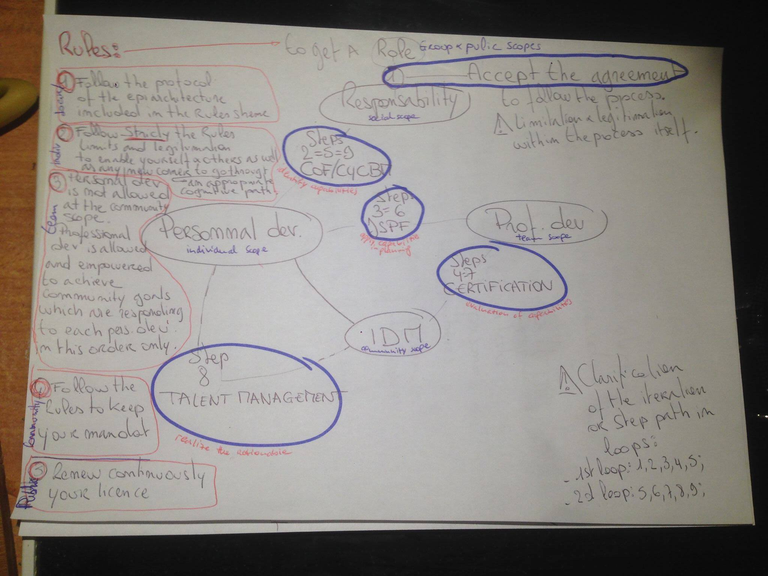 Rules:
to get A Role Group & public scopes
1 Accept the agreement
to follow the process.
⚠ Limitation & legitimation
within the process itself.
Responsability
social scope
1 Follow the protocol
of the epi architecture
included in the Rules sheme
2 Follow strictly the Rules
Limits and legitimation
to enable yourself & others as well
as any new comer to go through
an appropriate
cognitive path.
Steps
2=5=9
CoF/CyCBD
identify capacities
Steps
3=6
SPF
planning
Personnal dev.
individual scope
Prof. dev
team scope
Steps
4=7
CERTIFICATION
evaluation of
IDM
community scope
Step
8
TALENT MANAGEMENT
realize the
team
3 Personal dev
is not allowed
at the community
scope.
Professional
dev is allowed
and empowered
to achieve
community goals
which are responding
to each pers. dev
in this order only.
Community
4 Follow the
Rules to keep
your mandat
Public
5 Renew continuously
your licence
⚠ Clarification
of the iteration
or step path in
loops:
- 1st loop: 1,2,3,4,5;
- 2d loop: 5,6,7,8,9;